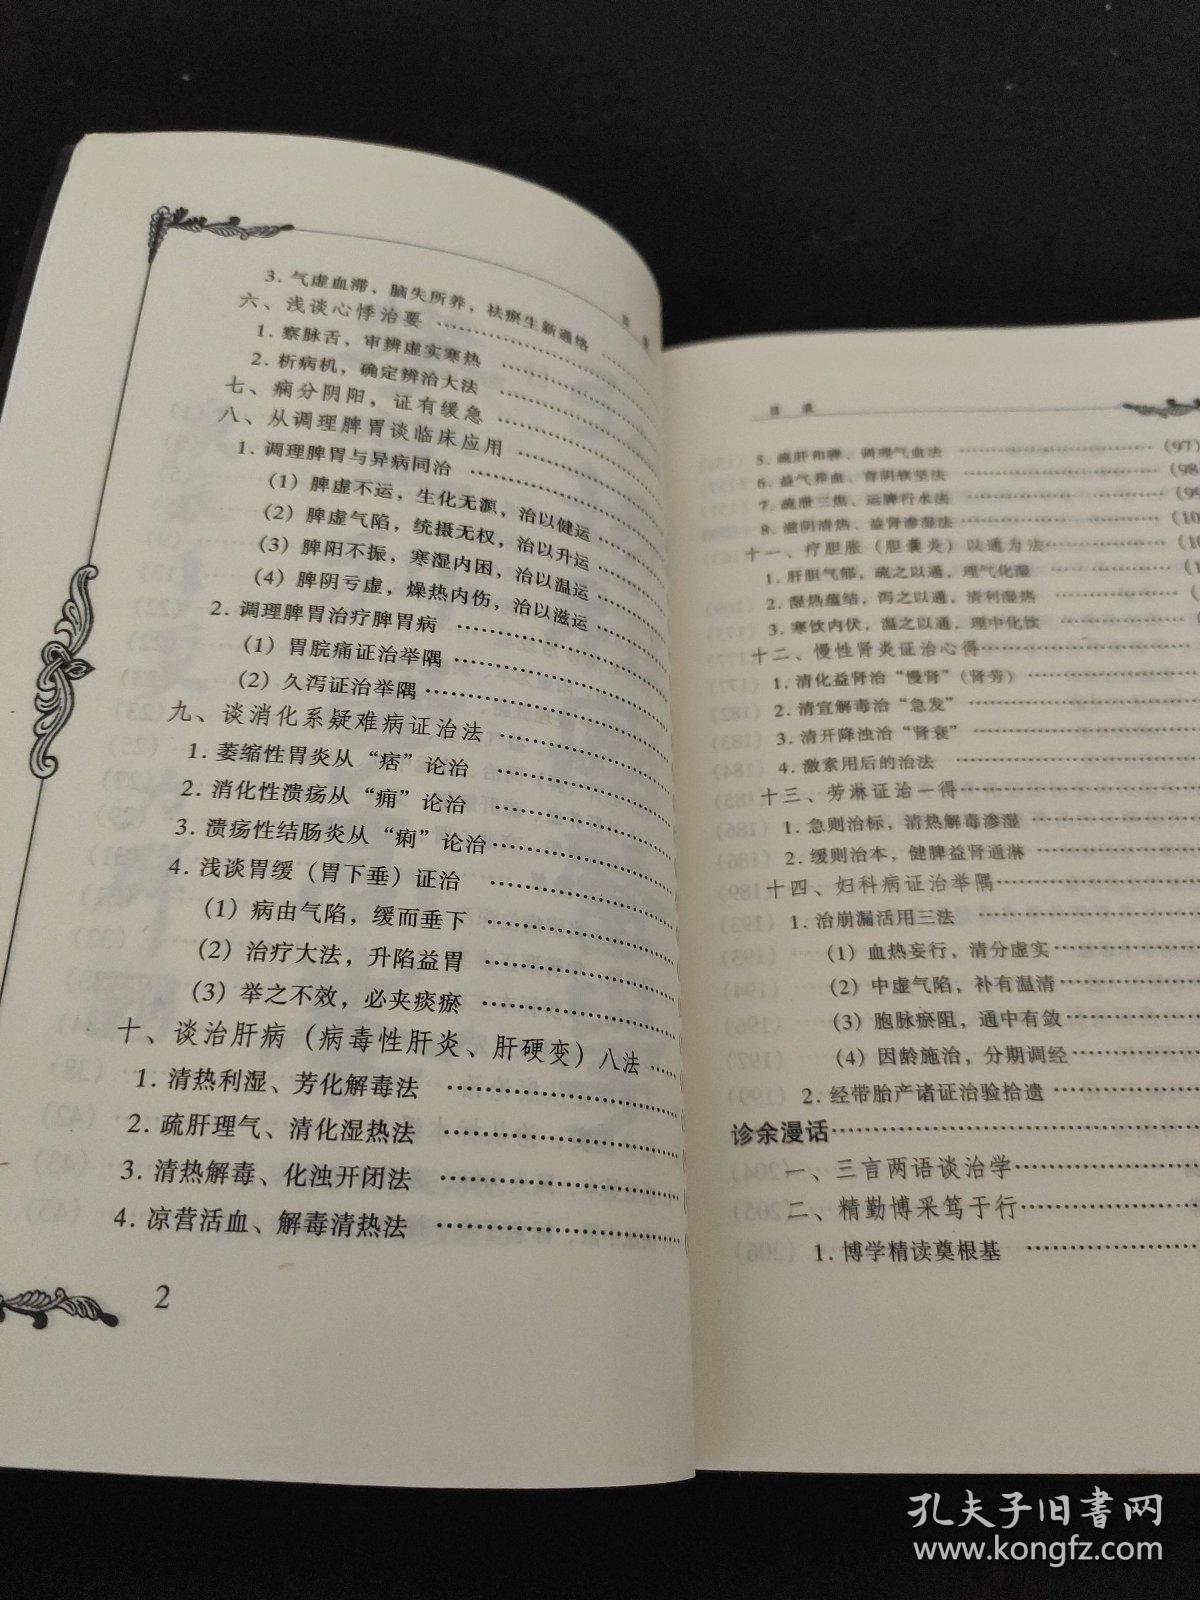 3. 气虚血滞，脑失所养，祛瘀生新通络 ……
六、浅谈心悸治要 ……
1. 察脉舌，审辨虚实寒热 ……
2. 析病机，确定辨治大法 ……
七、病分阴阳，证有缓急 ……
八、从调理脾胃谈临床应用 ……
1. 调理脾胃与异病同治 ……
（1）脾虚不运，生化无源，治以健运 ……
（2）脾虚气陷，统摄无权，治以升运 ……
（3）脾阳不振，寒湿内困，治以温运 ……
（4）脾阴亏虚，燥热内伤，治以滋运 ……
2. 调理脾胃治疗脾胃病 ……
（1）胃脘痛证治举隅 ……
（2）久泻证治举隅 ……
九、谈消化系疑难病证治法 ……
1. 萎缩性胃炎从“痞”论治 ……
2. 消化性溃疡从“痈”论治 ……
3. 溃疡性结肠炎从“痢”论治 ……
4. 浅谈胃缓（胃下垂）证治 ……
（1）病由气陷，缓而垂下 ……
（2）治疗大法，升陷益胃 ……
（3）举之不效，必夹痰瘀 ……
十、谈治肝病（病毒性肝炎、肝硬变）八法 ……
1. 清热利湿、芳化解毒法 ……
2. 疏肝理气、清化湿热法 ……
3. 清热解毒、化浊开闭法 ……
4. 凉营活血、解毒清热法 ……
2
目 录
5. 疏肝和脾、调理气血法 ……（97）
6. 益气养血、育阴软坚法 ……（98
7. 疏泄三焦、运脾行水法 ……（99
8. 滋阴清热、益肾渗湿法 ……（10
十一、疗胆胀（胆囊炎）以通为法 ……（10
1. 肝胆气郁，疏之以通，理气化湿 ……（1
2. 湿热蕴结，泻之以通，清利湿热 ……（
3. 寒饮内伏，温之以通，理中化饮 ……（
十二、慢性肾炎证治心得 ……
1. 清化益肾治“慢肾”（肾劳） ……
2. 清宣解毒治“急发” ……
3. 清开降浊治“肾衰” ……
4. 激素用后的治法 ……
十三、劳淋证治一得 ……
1. 急则治标，清热解毒渗湿 ……
2. 缓则治本，健脾益肾通淋 ……
十四、妇科病证治举隅 ……
1. 治崩漏活用三法 ……
（1）血热妄行，清分虚实 ……
（2）中虚气陷，补有温清 ……
（3）胞脉瘀阻，通中有敛 ……
（4）因龄施治，分期调经 ……
2. 经带胎产诸证治验拾遗 ……
诊余漫话 ……
一、三言两语谈治学 ……
二、精勤博采笃于行 ……
1. 博学精读奠根基 ……
孔夫子旧书网
www.kongfz.com